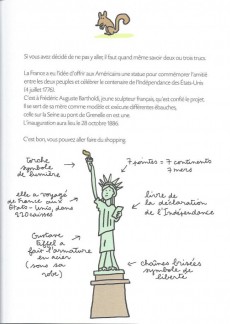 Si vous avez décidé de ne pas y aller, il faut quand même savoir deux ou trois trucs.
La France a eu l'idée d'offrir aux Américains une statue pour commémorer l'amitié
entre les deux peuples et célébrer le centenaire de l'Indépendance des Etats-Unis
(4 juillet 1776).
C'est à Frédéric Auguste Bartholdi, jeune sculpteur français, qu'est confié le projet.
Il se sert de sa mère comme modèle et exécute différentes ébauches,
celle sur la Seine au pont de Grenelle en est une.
L'inauguration aura lieu le 28 octobre 1886.
C'est bon, vous pouvez aller faire du shopping.
torche
symbole
de
lumière
7 pointes = 7 continents
7 mers
elle a voyagé
de France aux
Etats-Unis, dans
220 caisses
livre de
la
déclaration
de
l'Indépendance
Gustave
Eiffel a
fait l'armature
en acier
(sous sa
robe)
chaînes brisées
symbole de
liberté